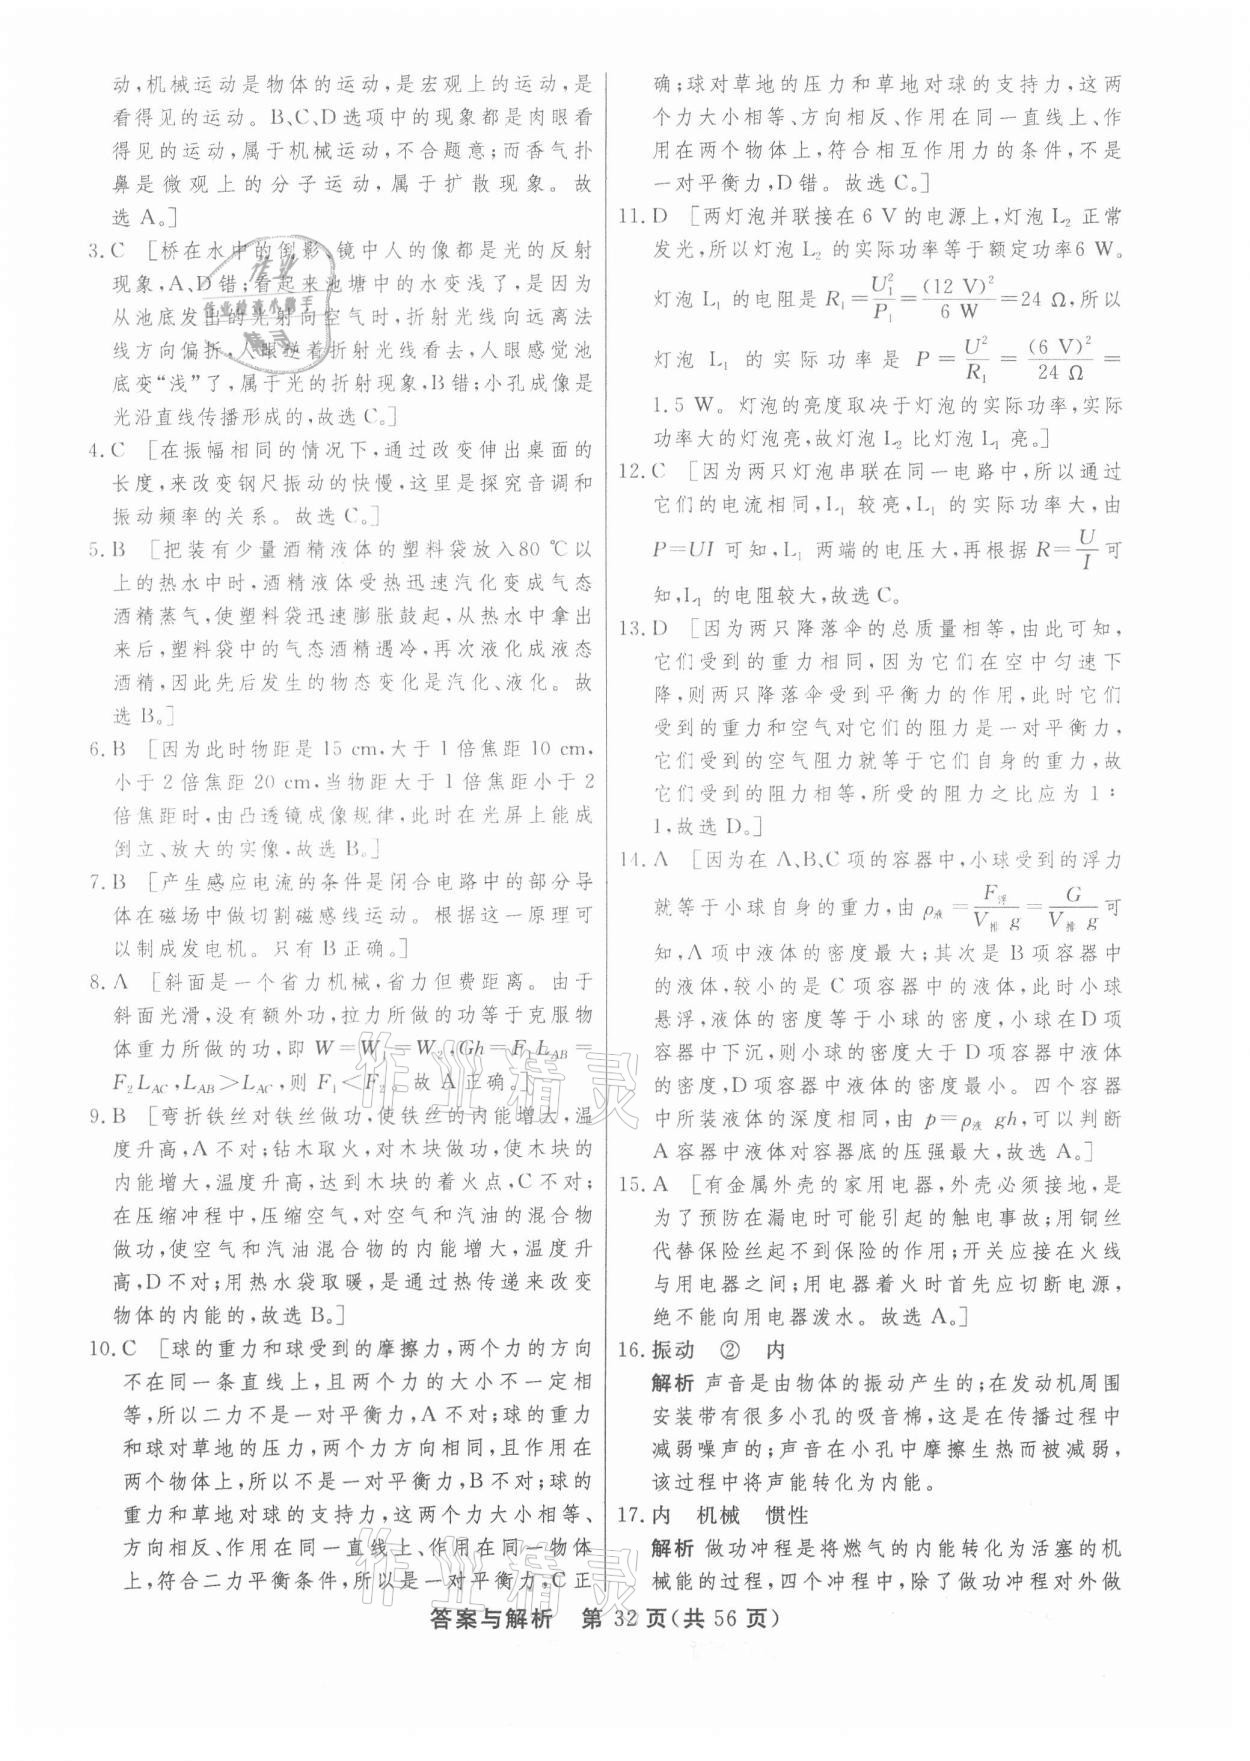 动,机械运动是物体的运动,是宏观上的运动,是
看得见的运动。B、C、D选项中的现象都是肉眼看
得见的运动,属于机械运动,不合题意;而香气扑
鼻是微观上的分子运动,属于扩散现象。故
选 A。]
3. C [桥在水中的倒影、镜中人的像都是光的反射
现象,A、D错;看起来池塘中的水变浅了,是因为
从池底发出的光射向空气时,折射光线向远离法
线方向偏折,人眼逆着折射光线看去,人眼感觉池
底变“浅”了,属于光的折射现象,B错;小孔成像是
光沿直线传播形成的,故选C。]
4. C [在振幅相同的情况下,通过改变伸出桌面的
长度,来改变钢尺振动的快慢,这里是探究音调和
振动频率的关系。故选C。]
5. B [把装有少量酒精液体的塑料袋放入80 ℃以
上的热水中时,酒精液体受热迅速汽化变成气态
酒精蒸气,使塑料袋迅速膨胀鼓起,从热水中拿出
来后,塑料袋中的气态酒精遇冷,再次液化成液态
酒精,因此先后发生的物态变化是汽化、液化。故
选 B。]
6. B [因为此时物距是 15 cm,大于 1 倍焦距 10 cm,
小于 2 倍焦距 20 cm,当物距大于 1 倍焦距小于 2
倍焦距时,由凸透镜成像规律,此时在光屏上能成
倒立、放大的实像,故选 B。]
7. B [产生感应电流的条件是闭合电路中的部分导
体在磁场中做切割磁感线运动。根据这一原理可
以制成发电机。只有 B 正确。]
8. A [斜面是一个省力机械,省力但费距离。由于
斜面光滑,没有额外功,拉力所做的功等于克服物
体重力所做的功,即 W=W₁=W₂,Gh=F₁L_AB=
F₂L_AC,L_AB>L_AC,则 F₁<F₂。故 A 正确。]
9. B [弯折铁丝对铁丝做功,使铁丝的内能增大,温
度升高,A 不对;钻木取火,对木块做功,使木块的
内能增大,温度升高,达到木块的着火点,C不对;
在压缩冲程中,压缩空气,对空气和汽油的混合物
做功,使空气和汽油混合物的内能增大,温度升
高,D 不对;用热水袋取暖,是通过热传递来改变
物体的内能的,故选 B。]
10. C [球的重力和球受到的摩擦力,两个力的方向
不在同一条直线上,且两个力的大小不一定相
等,所以二力不是一对平衡力,A 不对;球的重力
和球对草地的压力,两个力方向相同,且作用在
两个物体上,所以不是一对平衡力,B不对;球的
重力和草地对球的支持力,这两个力大小相等、
方向相反、作用在同一直线上、作用在同一物体
上,符合二力平衡条件,所以是一对平衡力,C 正
确;球对草地的压力和草地对球的支持力,这两
个力大小相等、方向相反、作用在同一直线上、作
用在两个物体上,符合相互作用力的条件,不是
一对平衡力,D 错。故选 C。]
11. D [两灯泡并联接在 6 V 的电源上,灯泡 L₂ 正常
发光,所以灯泡 L₂ 的实际功率等于额定功率6 W。
灯泡 L₁ 的电阻是 R₁=U₁²/P₁=(12 V)²/6 W=24 Ω,所以
灯泡 L₁ 的实际功率是 P=U²/R₁=(6 V)²/24 Ω=
1.5 W。灯泡的亮度取决于灯泡的实际功率,实际
功率大的灯泡亮,故灯泡 L₂ 比灯泡 L₁ 亮。]
12. C [因为两只灯泡串联在同一电路中,所以通过
它们的电流相同,L₁ 较亮,L₁ 的实际功率大,由
P=UI 可知,L₁ 两端的电压大,再根据 R=U/I可
知,L₁ 的电阻较大,故选C。
13. D [因为两只降落伞的总质量相等,由此可知,
它们受到的重力相同,因为它们在空中匀速下
降,则两只降落伞受到平衡力的作用,此时它们
受到的重力和空气对它们的阻力是一对平衡力,
它们受到的空气阻力就等于它们自身的重力,故
它们受到的阻力相等,所受的阻力之比应为 1∶
1,故选 D。]
14. A [因为在 A、B、C 项的容器中,小球受到的浮力
就等于小球自身的重力,由 ρ液=F浮/V排 g=G/V排 g可
知,A 项中液体的密度最大;其次是 B 项容器中
的液体,较小的是 C 项容器中的液体,此时小球
悬浮,液体的密度等于小球的密度,小球在D项
容器中下沉,则小球的密度大于 D 项容器中液体
的密度,D 项容器中液体的密度最小。四个容器
中所装液体的深度相同,由 p=ρ液 gh,可以判断
A 容器中液体对容器底的压强最大,故选 A。]
15. A [有金属外壳的家用电器,外壳必须接地,是
为了预防在漏电时可能引起的触电事故;用铜丝
代替保险丝起不到保险的作用;开关应接在火线
与用电器之间;用电器着火时首先应切断电源,
绝不能向用电器泼水。故选 A。]
16. 振动 ② 内
解析 声音是由物体的振动产生的;在发动机周围
安装带有很多小孔的吸音棉,这是在传播过程中
减弱噪声的;声音在小孔中摩擦生热而被减弱,
该过程中将声能转化为内能。
17. 内 机械 惯性
解析 做功冲程是将燃气的内能转化为活塞的机
械能的过程,四个冲程中,除了做功冲程对外做
答案与解析 第 32 页(共 56 页)
作业
作业检查小帮手
精灵
作业精灵
作业精灵